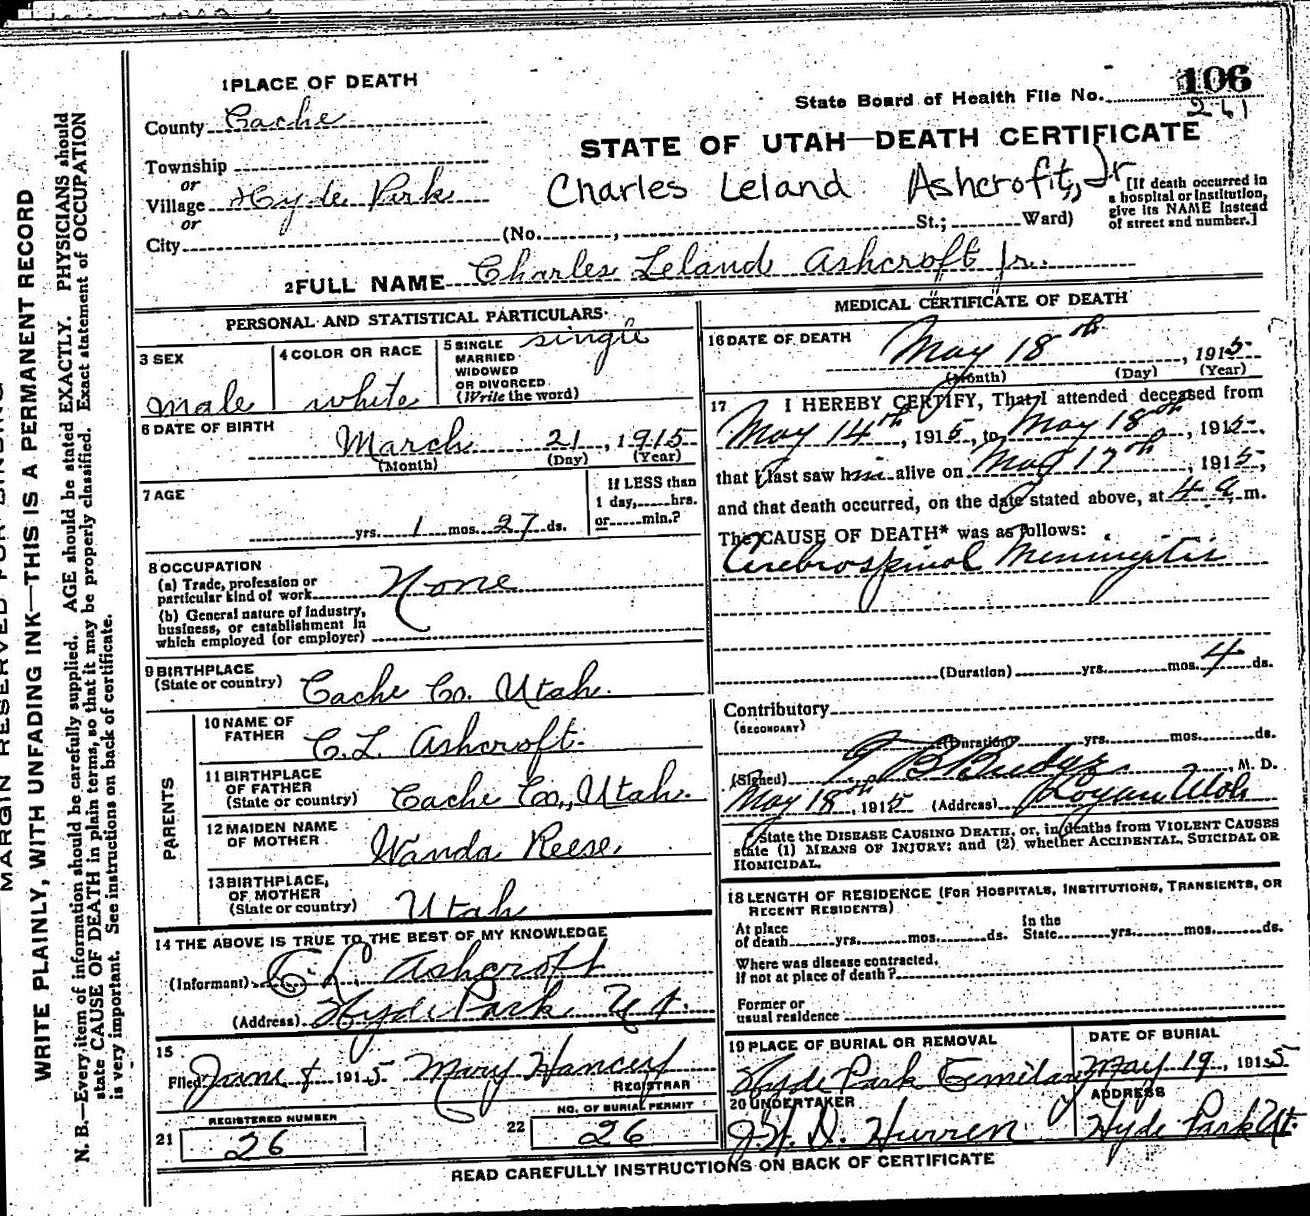 MARGIN RESERVED FOR BINDING
WRITE PLAINLY, WITH UNFADING INK—THIS IS A PERMANENT RECORD
N. B.—Every item of information should be carefully supplied. AGE should be stated EXACTLY. PHYSICIANS should
state CAUSE OF DEATH in plain terms, so that it may be properly classified. Exact statement of OCCUPATION
is very important. See instructions on back of certificate.
1 PLACE OF DEATH
County Cache
Township
or
Village Hyde Park
or
City
State Board of Health File No. 106
261
STATE OF UTAH—DEATH CERTIFICATE
Charles Leland Ashcroft, Jr
(No. , St.; Ward)
[If death occurred in
a hospital or institution,
give its NAME instead
of street and number.]
2 FULL NAME Charles Leland Ashcroft Jr.
PERSONAL AND STATISTICAL PARTICULARS
3 SEX
male
4 COLOR OR RACE
white
5 SINGLE
MARRIED
WIDOWED
OR DIVORCED
(Write the word)
single
6 DATE OF BIRTH
March 21, 1915
(Month) (Day) (Year)
7 AGE
yrs. 1 mos. 27 ds.
If LESS than
1 day, hrs.
or min.?
8 OCCUPATION
(a) Trade, profession or
particular kind of work None
(b) General nature of industry,
business, or establishment in
which employed (or employer)
9 BIRTHPLACE
(State or country) Cache Co. Utah.
PARENTS
10 NAME OF
FATHER C.L. Ashcroft.
11 BIRTHPLACE
OF FATHER
(State or country) Cache Co., Utah.
12 MAIDEN NAME
OF MOTHER Wanda Reese.
13 BIRTHPLACE,
OF MOTHER
(State or country) Utah
14 THE ABOVE IS TRUE TO THE BEST OF MY KNOWLEDGE
(Informant) C. L. Ashcroft
(Address) Hyde Park Ut.
15
Filed June 1915 Mary Hancey
REGISTRAR
21 REGISTERED NUMBER
26
22 NO. OF BURIAL PERMIT
26
MEDICAL CERTIFICATE OF DEATH
16 DATE OF DEATH
May 18th, 1915
(Month) (Day) (Year)
17 I HEREBY CERTIFY, That I attended deceased from
May 14th, 1915, to May 18th, 1915,
that I last saw him alive on May 17th, 1915,
and that death occurred, on the date stated above, at 4 a m.
The CAUSE OF DEATH* was as follows:
Cerebrospinal Meningitis
(Duration) yrs. mos. 4 ds.
Contributory
(SECONDARY)
(Duration) yrs. mos. ds.
(Signed) Budge, M. D.
May 18th, 1915 (Address) Logan Utah
*State the DISEASE CAUSING DEATH, or, in deaths from VIOLENT CAUSES
state (1) MEANS OF INJURY; and (2) whether ACCIDENTAL, SUICIDAL OR
HOMICIDAL.
18 LENGTH OF RESIDENCE (FOR HOSPITALS, INSTITUTIONS, TRANSIENTS, OR
RECENT RESIDENTS)
At place
of death yrs. mos. ds.
In the
State yrs. mos. ds.
Where was disease contracted,
if not at place of death?
Former or
usual residence
19 PLACE OF BURIAL OR REMOVAL
Hyde Park Cemitary
DATE OF BURIAL
May 19, 1915
20 UNDERTAKER
D. Hurren
ADDRESS
Hyde Park Ut.
READ CAREFULLY INSTRUCTIONS ON BACK OF CERTIFICATE